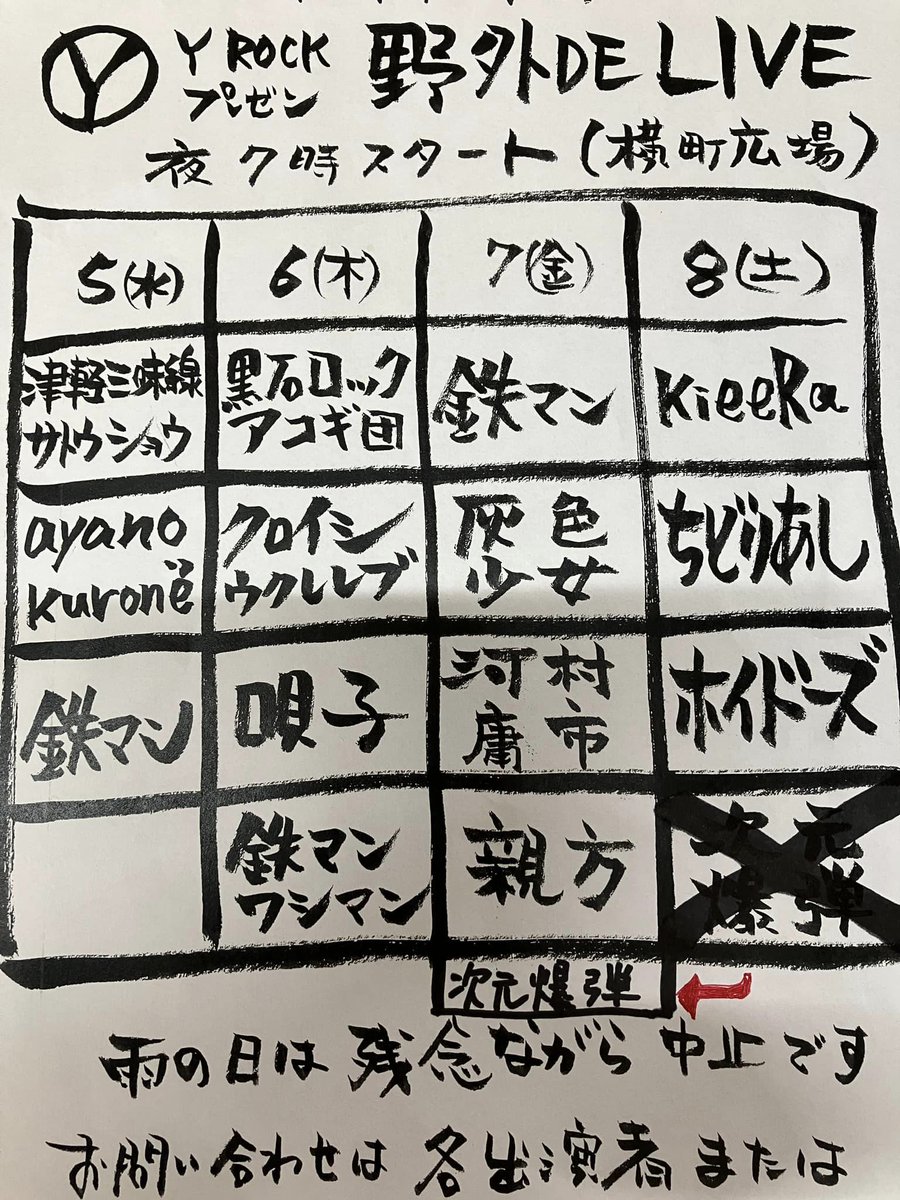 Y Y ROCK 野外DE LIVE
プレゼン
夜7時スタート(横町広場)
5(水) 6(木) 7(金) 8(土)
津軽三味線
サトウショウ
黒石ロック
アコギ団
鉄マン
KieeRa
ayano
kuronë
クロイシ
ウクレレブ
灰色
少女
ちどりあし
鉄マン
唄子
河村
庸市
ホイドーズ
鉄マン
ワシマン
親方
次元
爆弾
次元爆弾
雨の日は残念ながら中止です
お問い合わせは各出演者または